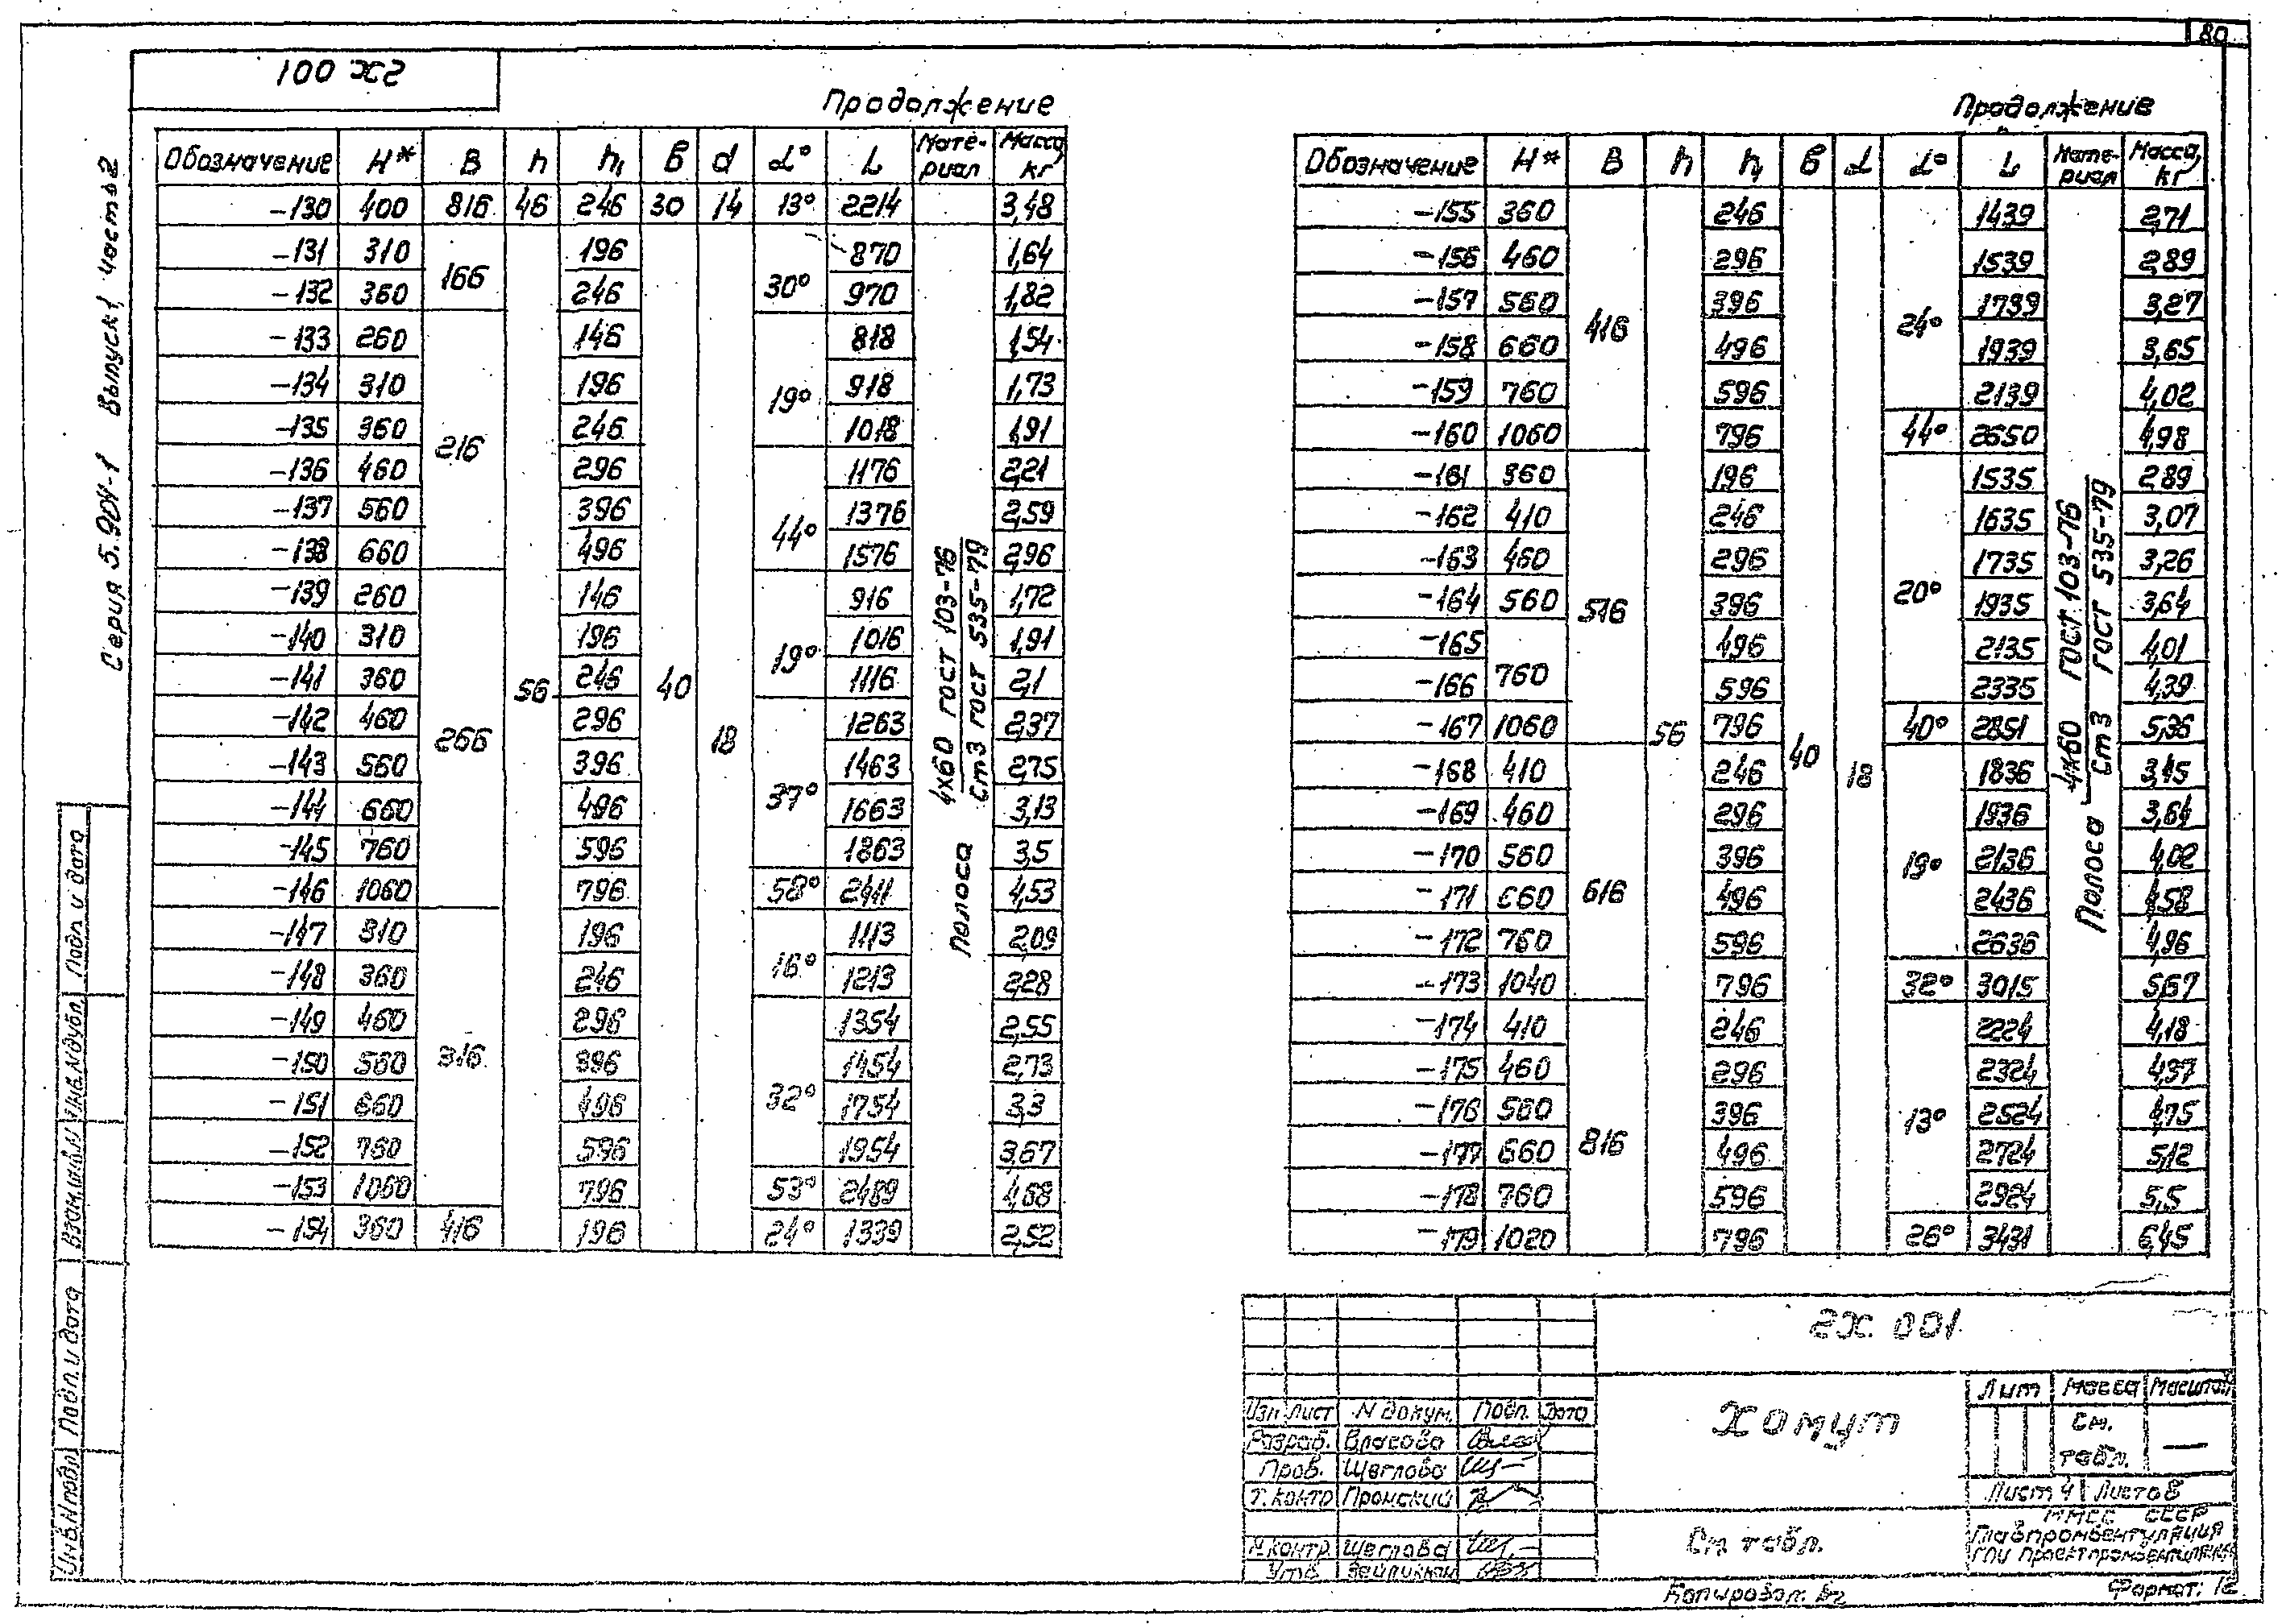 80
2Х 001
Серия 5.904-1 Выпуск 1, часть 2
Продолжение
Обозначение H* B h h₁ б d α° L Мате-риал Масса, кг
-130 400 816 46 246 30 14 13° 2214 3,48
-131 310 166 56 196 40 18 30° 870 1,64
-132 360 246 970 1,82
-133 260 216 146 19° 818 1,54
-134 310 196 918 1,73
-135 360 246 1018 1,91
-136 460 296 44° 1176 2,21
-137 560 396 1376 2,59
-138 660 496 1576 2,96
-139 260 266 146 19° 916 1,72
-140 310 196 1016 1,91
-141 360 246 1116 2,1
-142 460 296 37° 1263 2,37
-143 560 396 1463 2,75
-144 660 496 1663 3,13
-145 760 596 1863 3,5
-146 1060 796 58° 2411 4,53
-147 310 316 196 16° 1113 2,09
-148 360 246 1213 2,28
-149 460 296 32° 1354 2,55
-150 560 396 1454 2,73
-151 660 496 1754 3,3
-152 760 596 1954 3,67
-153 1060 796 53° 2489 4,68
-154 360 416 196 24° 1339 2,52
Полоса 4х60 ГОСТ 103-76
Ст3 ГОСТ 535-79
Продолжение
Обозначение H* B h h₁ б d α° L Мате-риал Масса, кг
-155 360 416 56 246 40 18 24° 1439 2,71
-156 460 296 1539 2,89
-157 560 396 1739 3,27
-158 660 496 1939 3,65
-159 760 596 2139 4,02
-160 1060 796 44° 2650 4,98
-161 360 516 196 20° 1535 2,89
-162 410 246 1635 3,07
-163 460 296 1735 3,26
-164 560 396 1935 3,64
-165 760 496 2135 4,01
-166 596 2335 4,39
-167 1060 796 40° 2851 5,36
-168 410 616 246 19° 1836 3,45
-169 460 296 1936 3,64
-170 560 396 2136 4,02
-171 660 496 2436 4,58
-172 760 596 2636 4,96
-173 1040 796 32° 3015 5,67
-174 410 816 246 13° 2224 4,18
-175 460 296 2324 4,37
-176 560 396 2524 4,75
-177 660 496 2724 5,12
-178 760 596 2924 5,5
-179 1020 796 26° 3431 6,45
Полоса 4х60 ГОСТ 103-76
Ст3 ГОСТ 535-79
Инв.N подл. Подп. и дата Взам.инв.N Инв.N дубл. Подп. и дата
2Х 001
Изм Лист N докум. Подп. Дата
Разраб. Власова
Пров. Щеглова
Т.контр Пронский
Н.контр. Щеглова
Утв.
Хомут
См. табл.
Лит Масса Масштаб
См. табл. —
Лист 4 Листов 8
ММСС СССР
Главпромвентиляция
ГПИ Проектпромвентиляция
Копировал.
Формат: 12